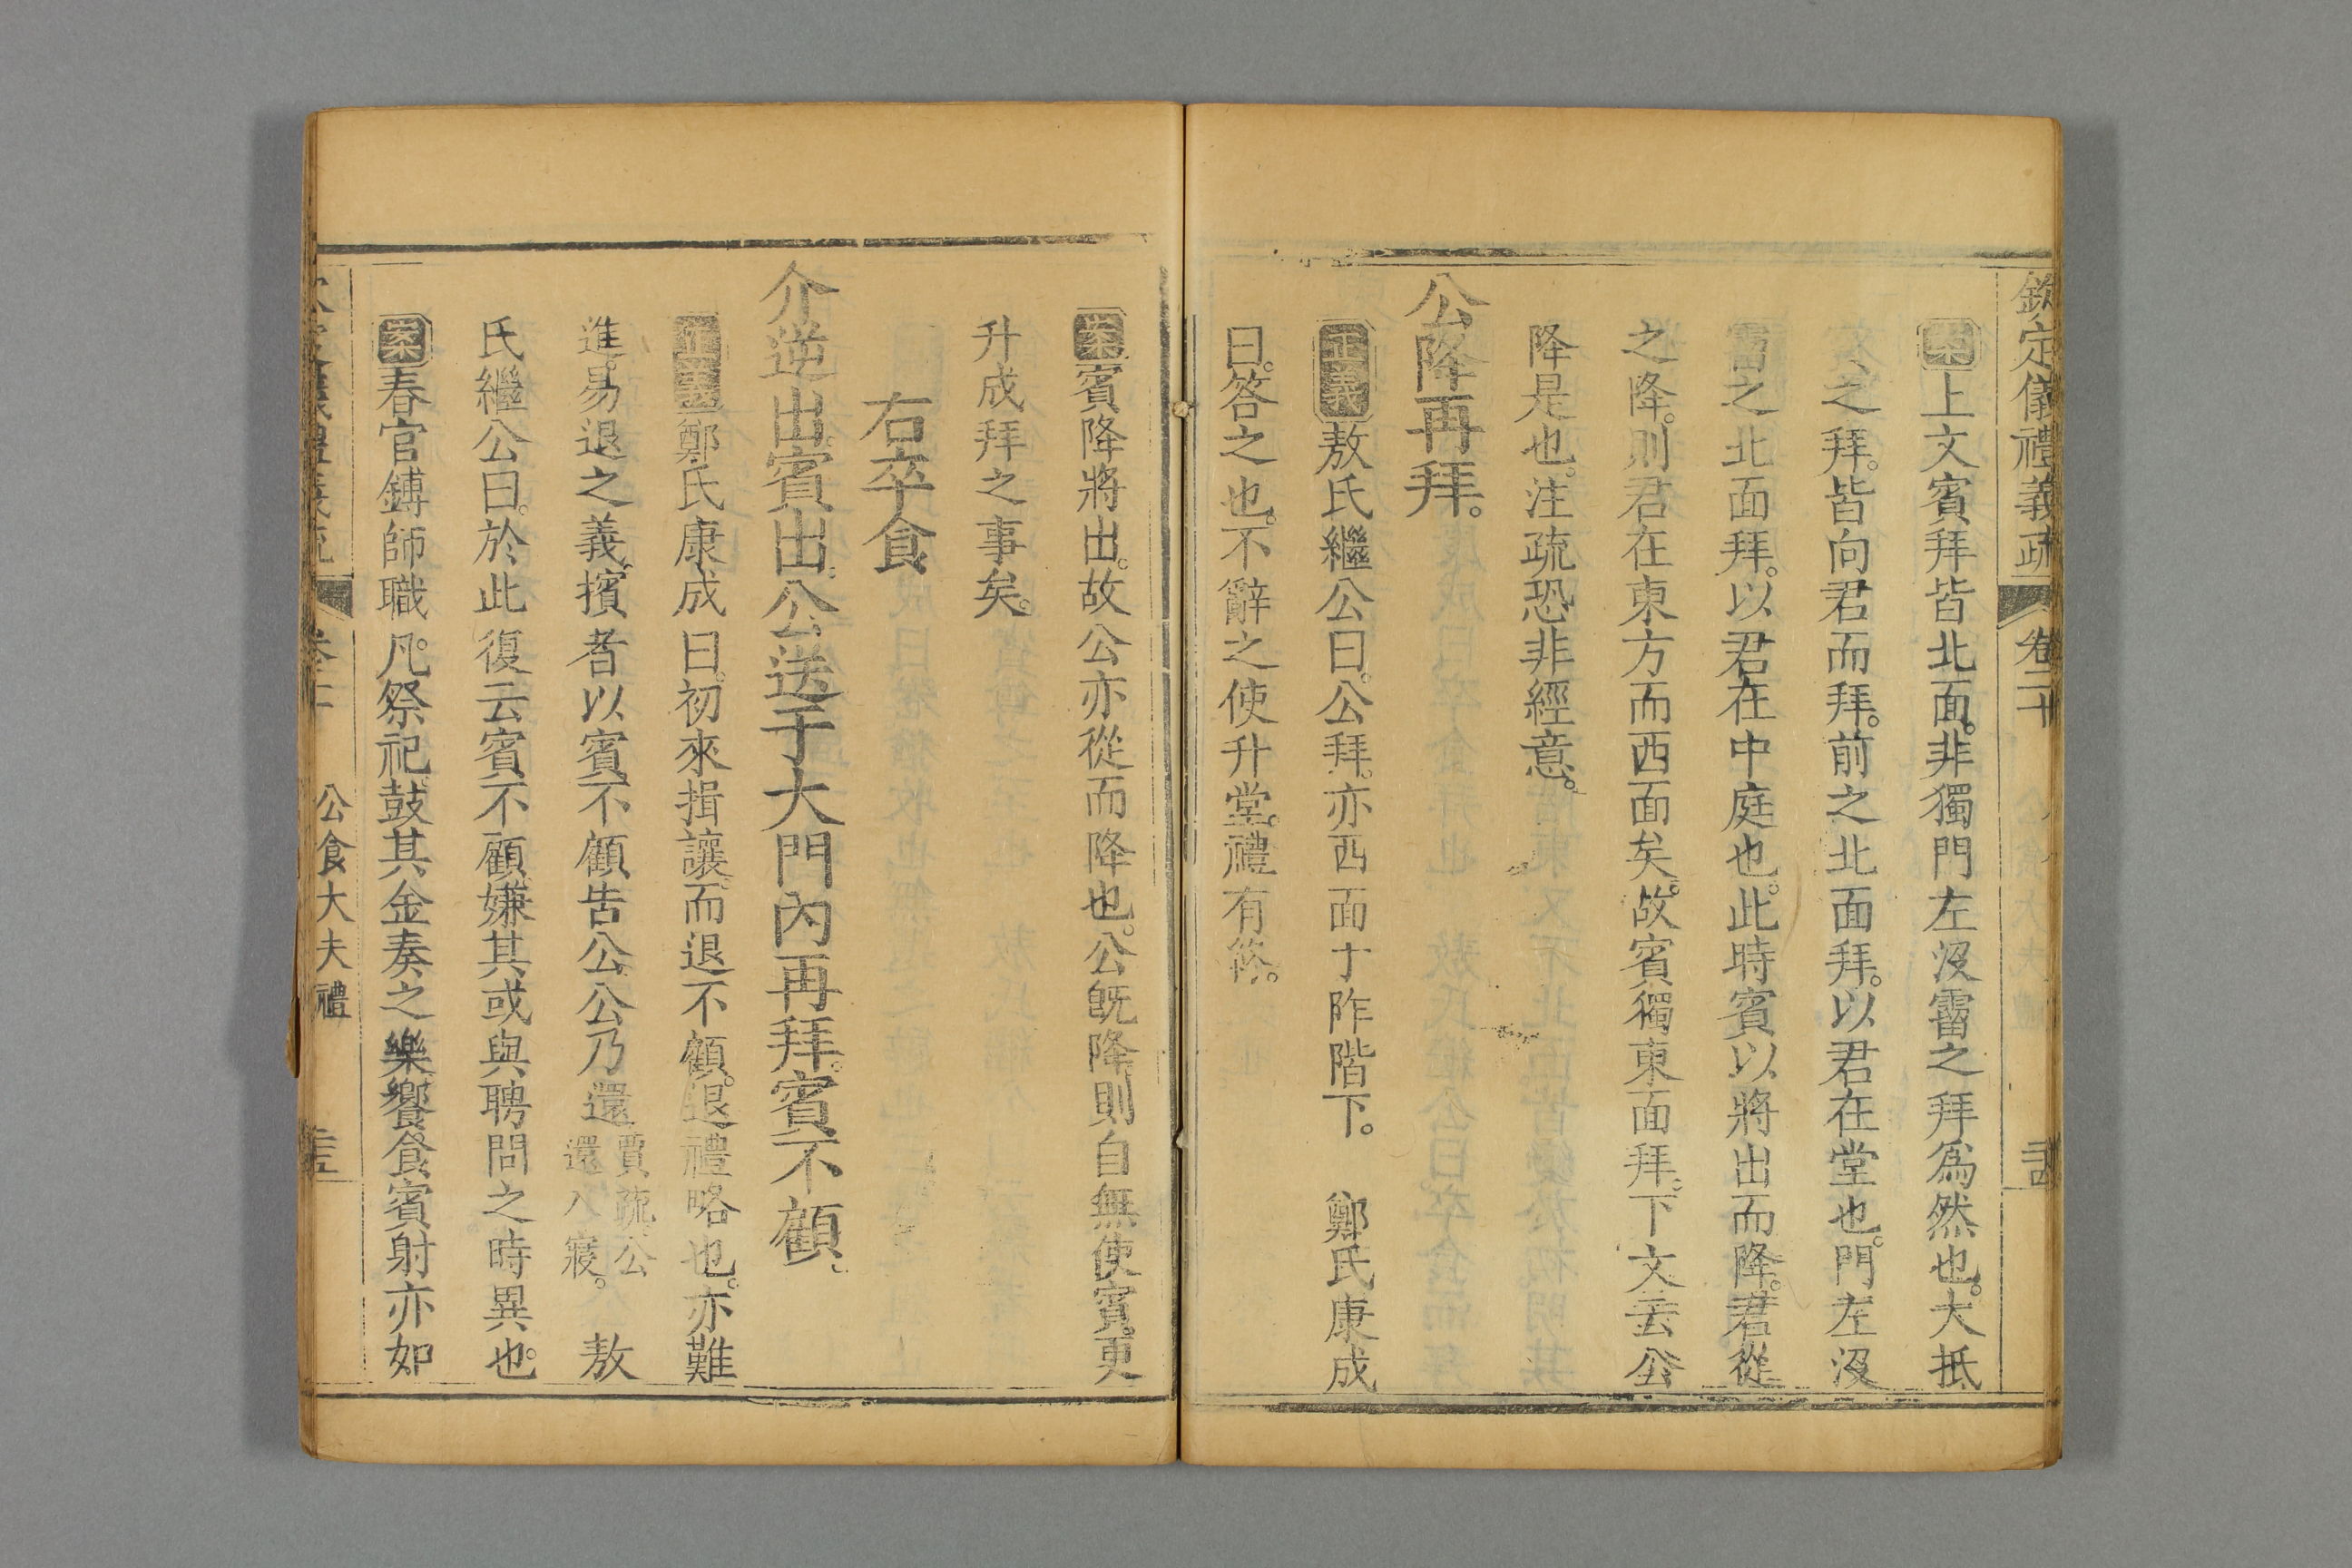 欽定儀禮義疏 卷二十
案上文賓拜皆北面。非獨門左沒霤之拜爲然也。大抵
之拜。皆向君而拜。前之北面拜。以君在堂也。門左沒
霤之北面拜。以君在中庭也。此時賓以將出而降。君從
之降。則君在東方而西面矣。故賓獨東面拜。下文云公
降是也。注疏恐非經意。
公降再拜。
正義敖氏繼公曰。公拜。亦西面于阼階下。 鄭氏康成
曰。答之也。不辭之使升堂。禮有終。
案賓降將出。故公亦從而降也。公旣降則自無使賓更
升成拜之事矣。
右卒食
介逆出。賓出。公送于大門內再拜。賓不顧。
正義鄭氏康成曰。初來揖讓。而退不顧。退禮略也。亦難
進。易退之義。擯者以賓不顧告公。公乃還 賈疏。公還入寢。 敖
氏繼公曰。於此復云賓不顧。嫌其或與聘問之時異也。
案春官鎛師職。凡祭祀。鼓其金奏之樂。饗食賓射亦如
公食大夫禮